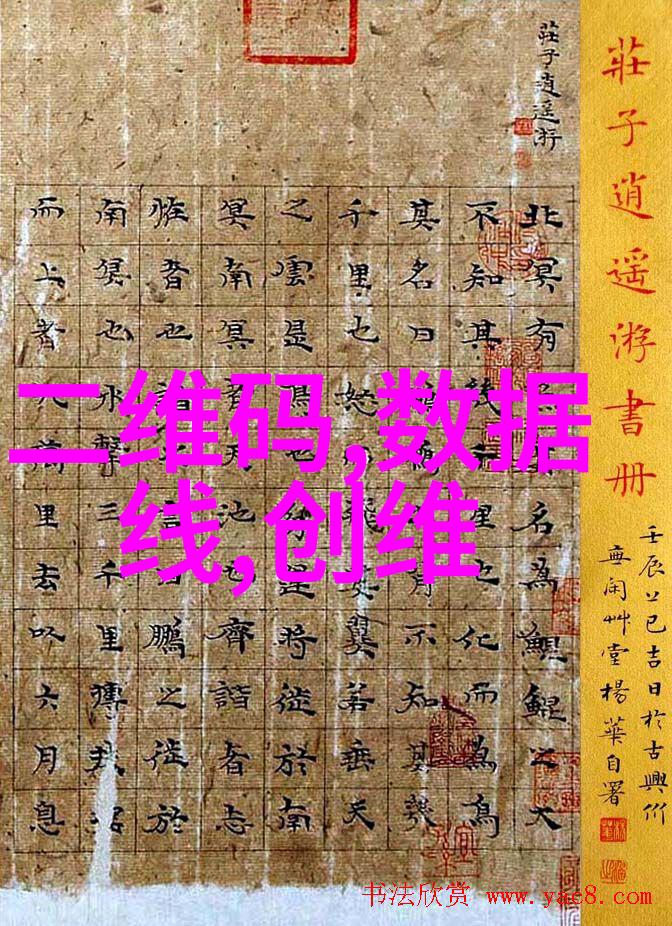 二维码,数据
线,创维
莊子逍遥游書册
壬辰上巳吉日於古興竹
無闲艸堂楊華自署
莊子逍遥游
北冥有名為鯤鯤之大
不知其幾里也化而為鳥
其名曰鵬背不知其幾
千里也怒飛其翼若垂天
之雲是鳥也運將徙於南
冥南冥者天池也齊諧者志
恠者也諧言曰鵬之徙於
南冥也水擊三千里摶
而上者九萬里去以六月息
书法欣赏 www.yac8.com